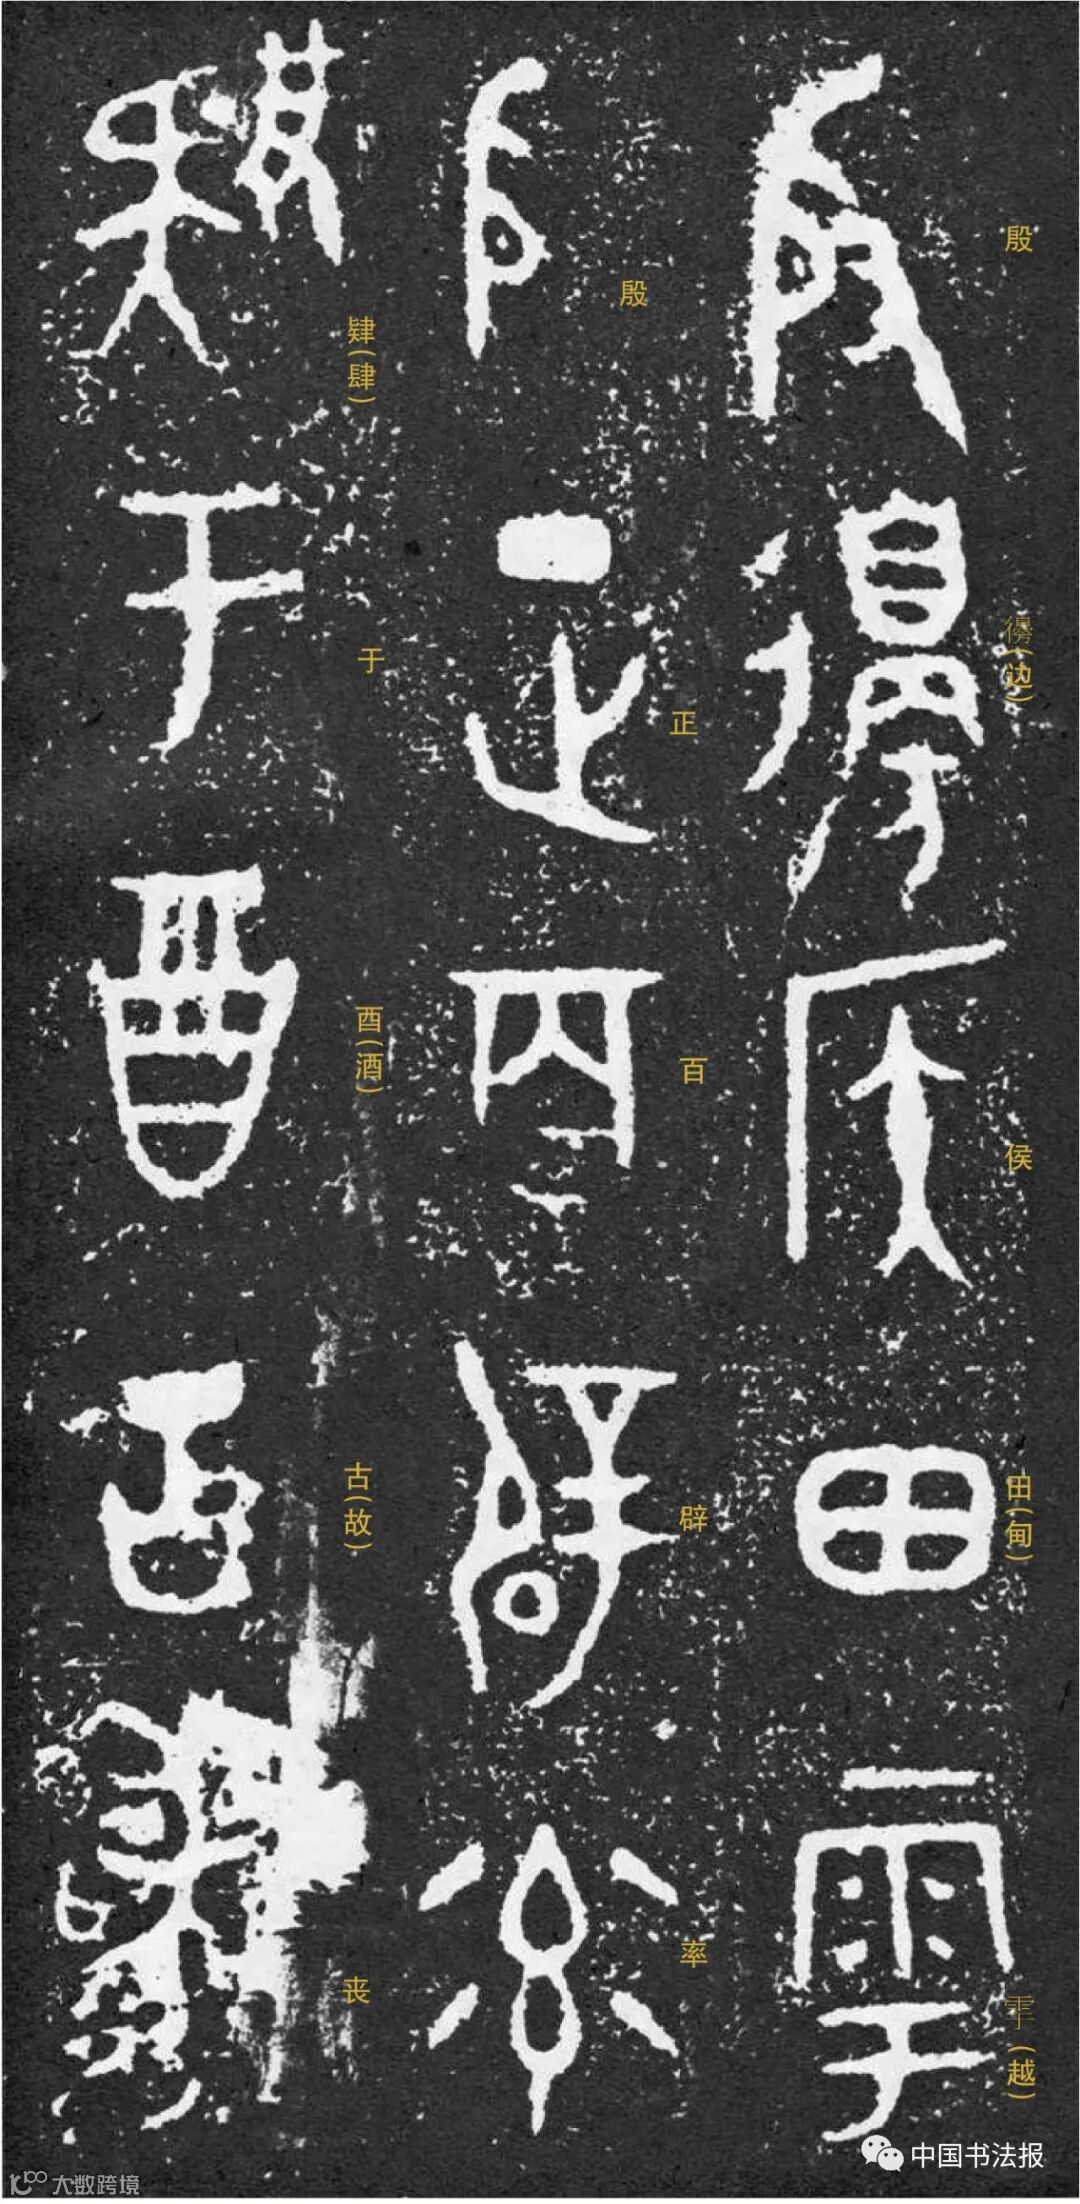 殷
邊(边)
侯
田(甸)
雩(越)
殷
正
百
辟
率
肄(肆)
于
酉(酒)
古(故)
丧
中国书法报
大数跨境